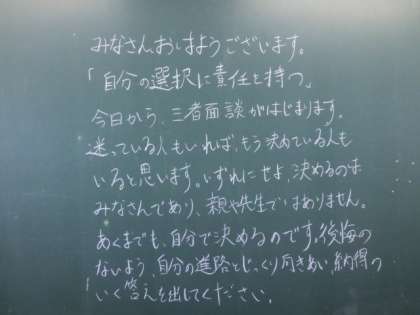 みなさん、おはようございます。
「自分の選択に責任を持つ」
今日から、三者面談がはじまります。
迷っている人もいれば、もう決めている人も
いると思います。いずれにせよ、決めるのは
みなさんであり、親や先生ではありません。
あくまでも、自分で決めるのです。後悔の
ないよう、自分の進路とじっくり向きあい納得の
いく答えを出してください。